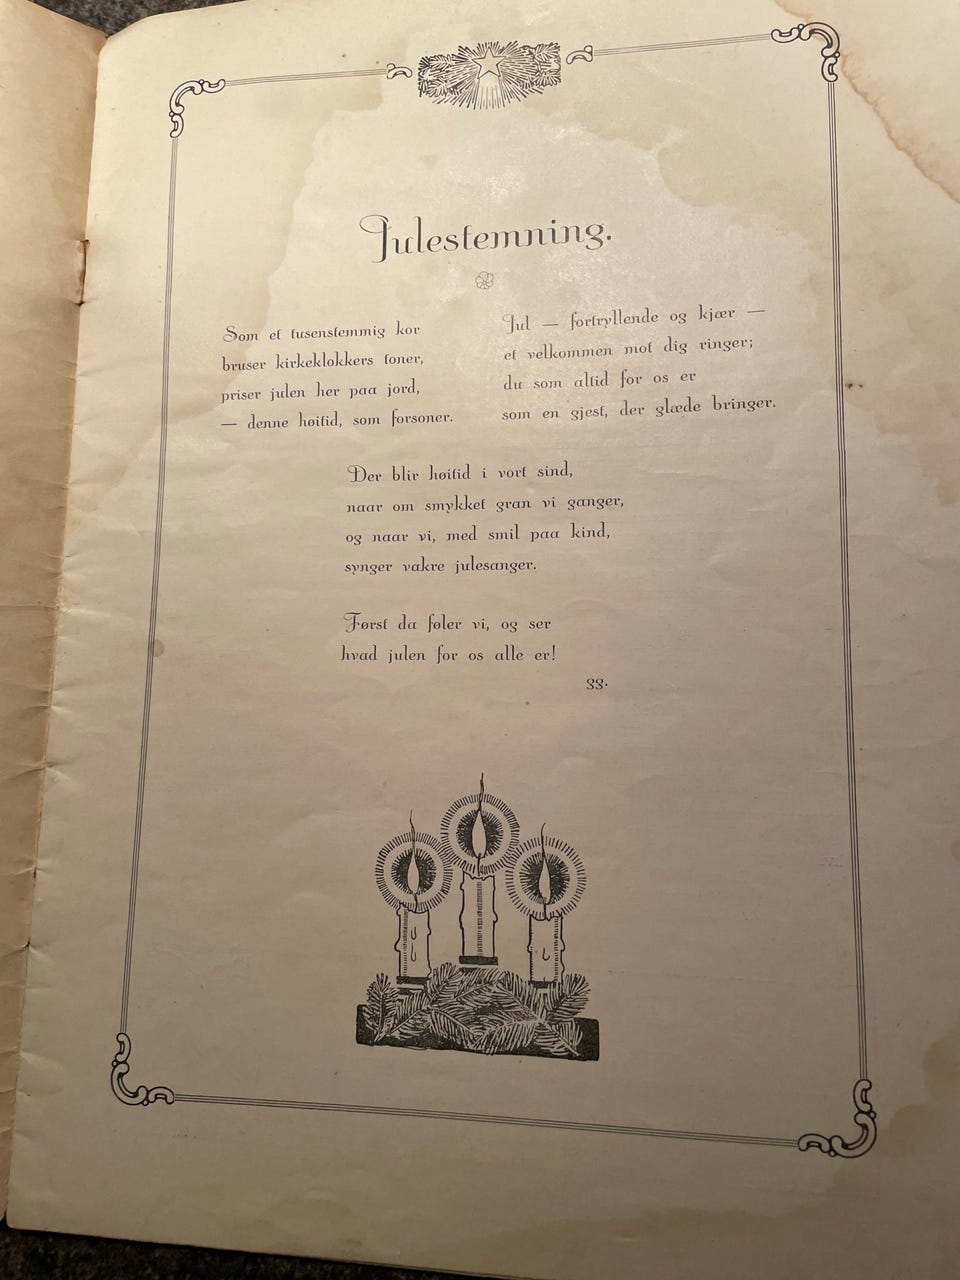 Julestemning.
Som et tusenstemmig kor
bruser kirkeklokkers toner,
priser julen her paa jord,
— denne høitid, som forsoner.
Jul — fortryllende og kjær —
et velkommen mot dig ringer;
du som altid for os er
som en gjest, der glæde bringer.
Der blir høitid i vort sind,
naar om smykket gran vi ganger,
og naar vi, med smil paa kind,
synger vakre julesanger.
Først da føler vi, og ser
hvad julen for os alle er!
gg.